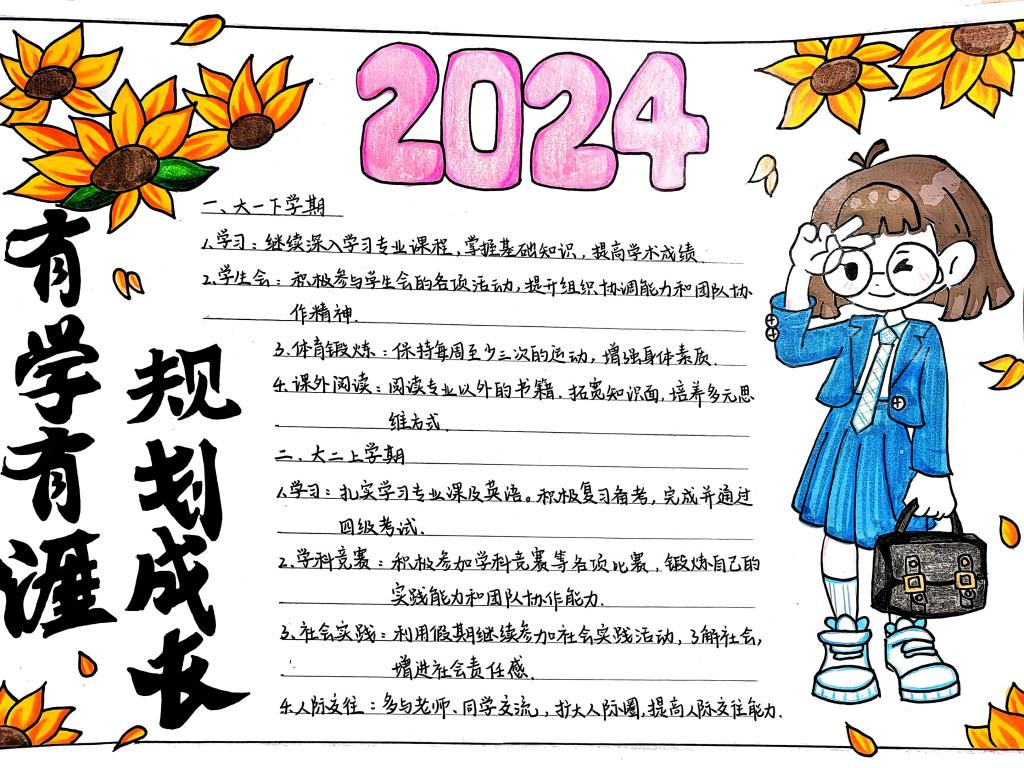 2024
有学有涯
规划成长
一、大一下学期
1.学习：继续深入学习专业课程，掌握基础知识，提高学术成绩.
2.学生会：积极参与学生会的各项活动，提升组织协调能力和团队协
作精神.
3.体育锻炼：保持每周至少三次的运动，增强身体素质.
4.课外阅读：阅读专业以外的书籍，拓宽知识面，培养多元思
维方式.
二、大二上学期
1.学习：扎实学习专业课及英语。积极复习备考，完成并通过
四级考试.
2.学科竞赛：积极参加学科竞赛等各项比赛，锻炼自己的
实践能力和团队协作能力.
3.社会实践：利用假期继续参加社会实践活动，了解社会，
增进社会责任感.
4.人际交往：多与老师、同学交流，扩大人际圈，提高人际交往能力.